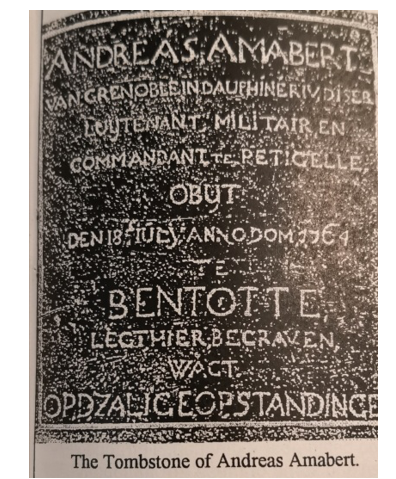 ANDREAS. AMABERT.
VAN GRENOBLE IN DAUPHINE RIV, DI SER
LUYTENANT, MILITAIR EN
COMMANDANT TE PETIGELLE
OBIJT
DEN 18E IULY. ANNO DOM 1764
TE
BENTOTTE,
LEGT HIER BEGRAVEN,
WAGT.
OP D ZALIGE OPSTANDINGE
The Tombstone of Andreas Amabert.